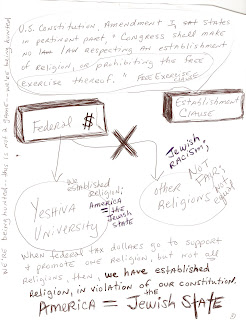 U.S. Constitution Amendment I, states
in pertinent part, "Congress shall make
no law respecting an establishment
of religion, or prohibiting the free
exercise thereof." Free Exercise
Federal $
Establishment
Clause
Jewish
Racism;
We
established
Religion;
America
= the
Jewish
State
Yeshiva
University
other
Religions
NOT
FAIR;
not
equal
When federal tax dollars go to support
& promote one Religion, but not all
Religions, then, we have established
Religion, in violation of our constitution.
America = the Jewish State
We're being hunted--this is not a game--we're being hunted